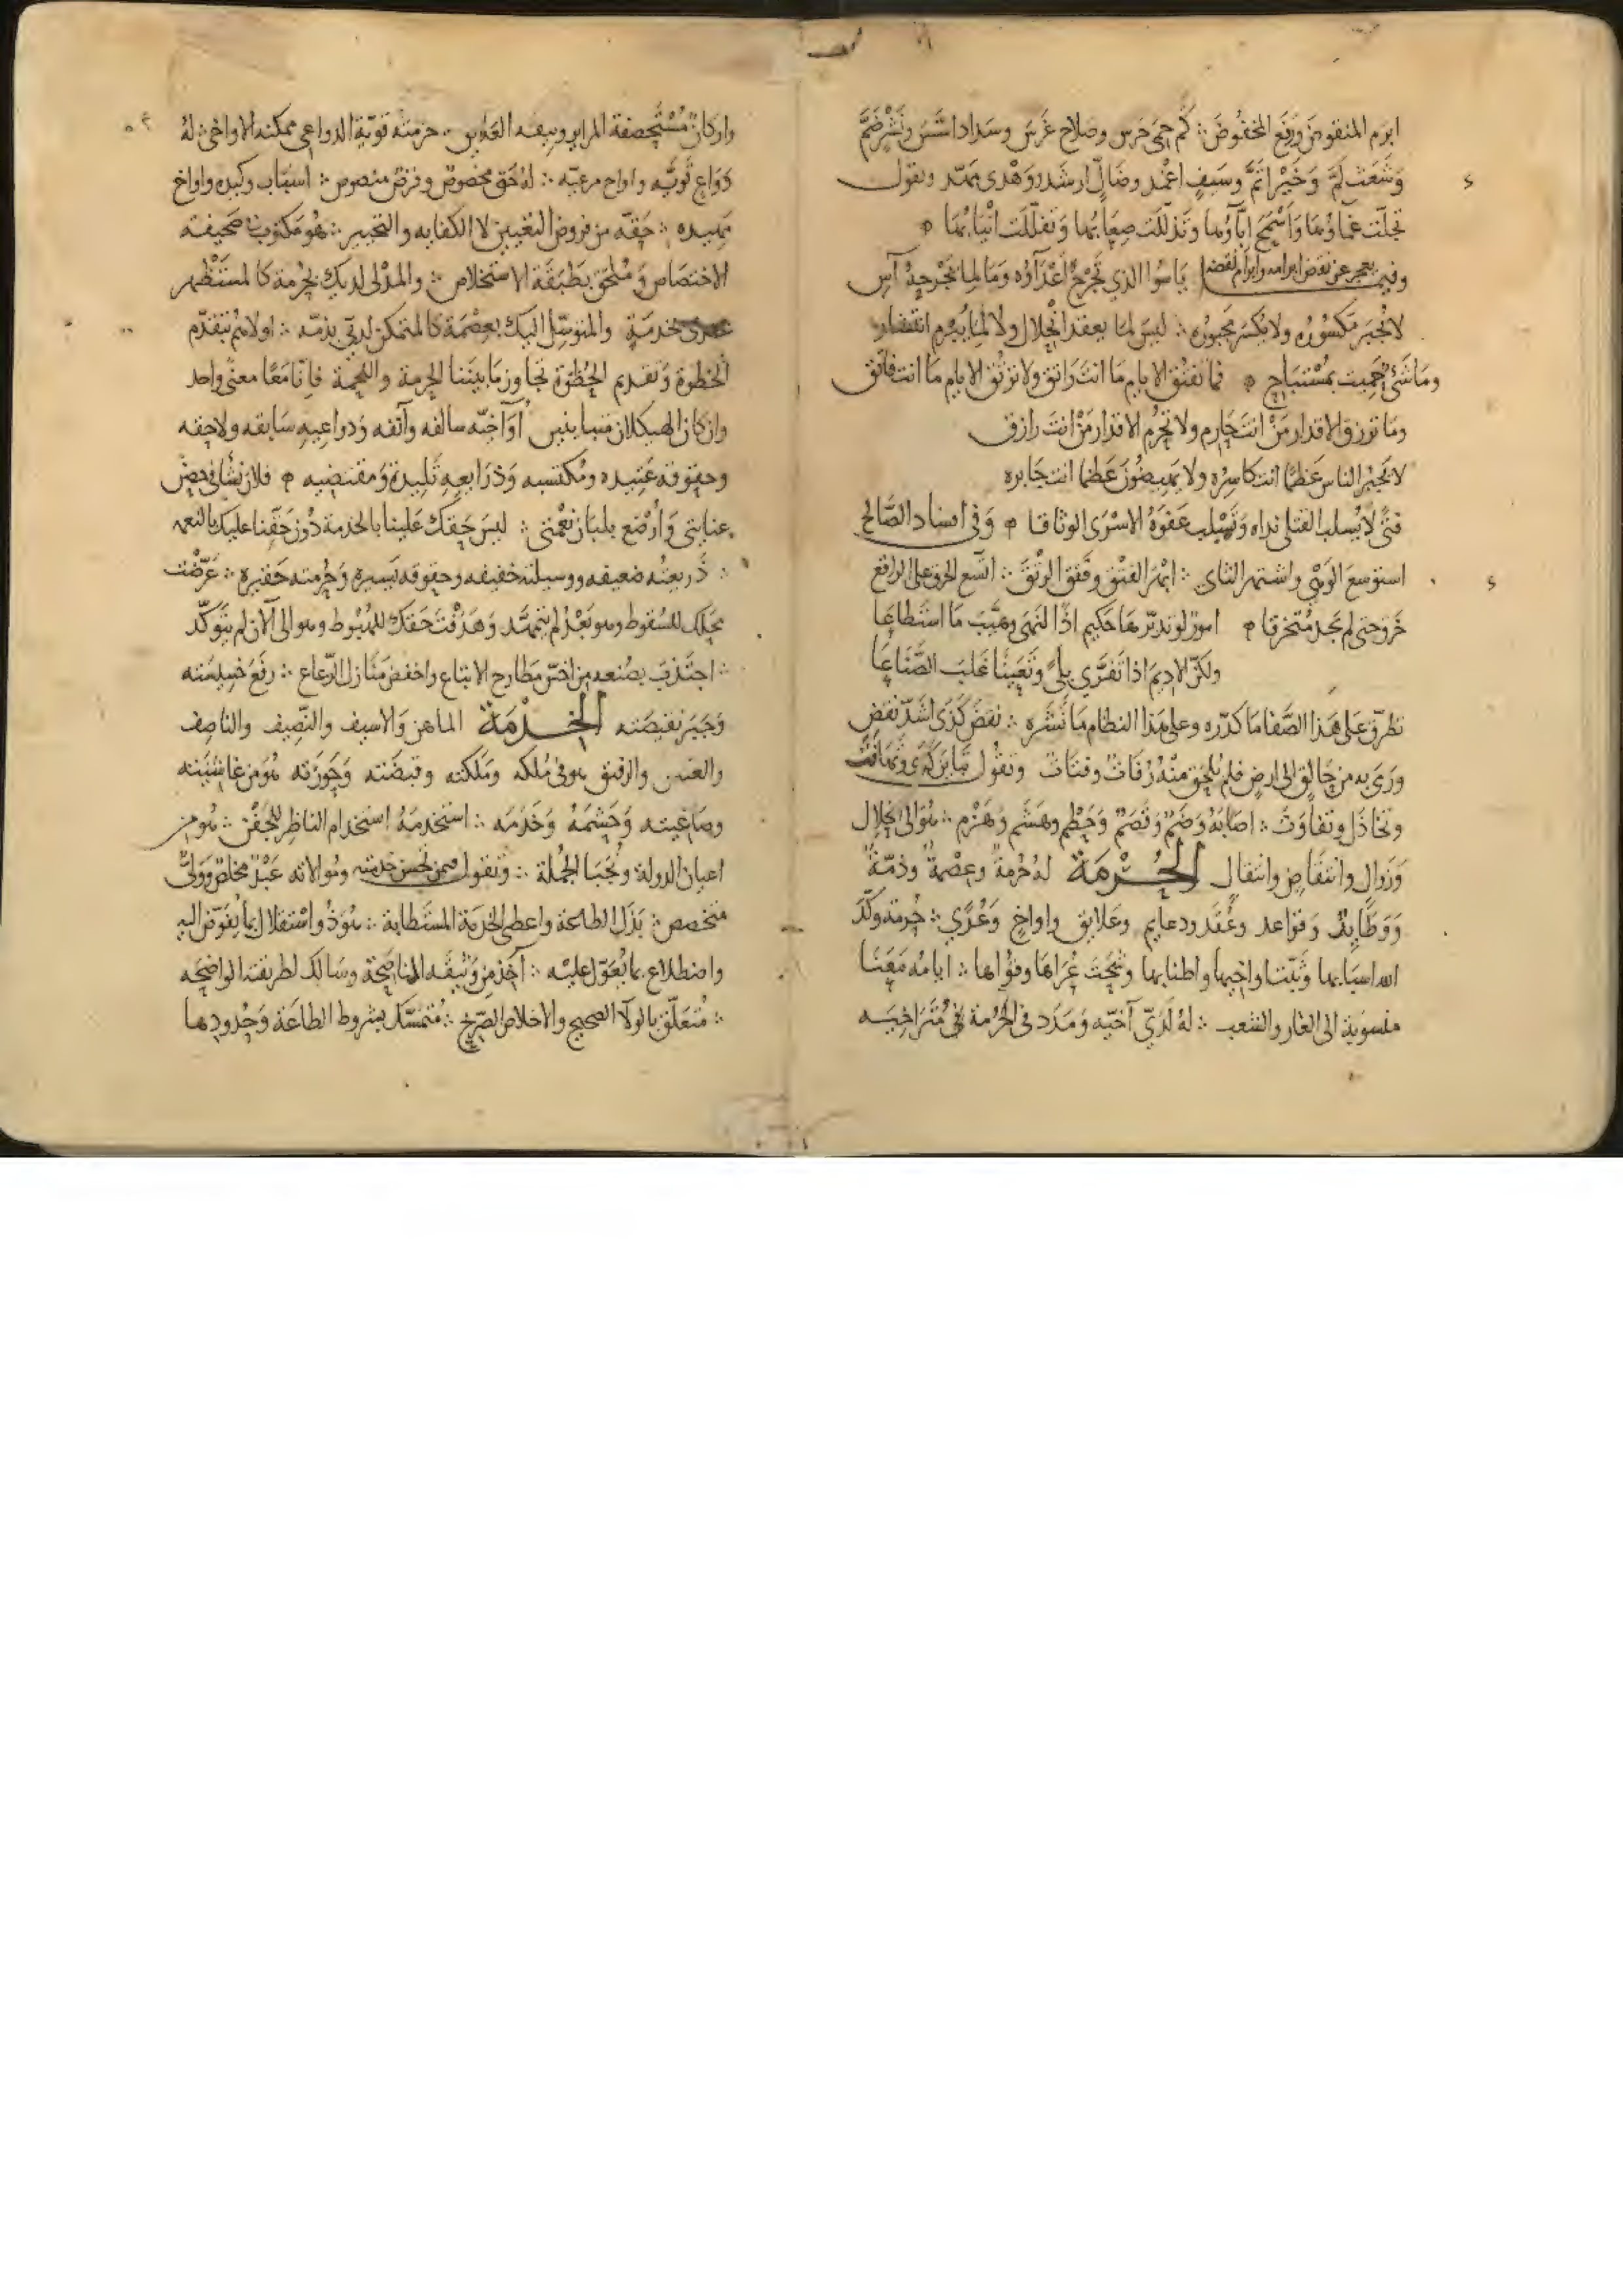 ابرم المنقوض ورفع المخفوض ∴ كم حمى حرس وصلاح غرس وسداد اسّس ونشر ضمّ
وشعث لمّ وخير اتمّ وسيف اغمد وضالّ ارشد وهدى مهّد وتقول
تجلّت غماؤها واسمح اباؤها وتذلّلت صعابها وتفلّلت انيابها
وفيمن يعجز عن نقض ابرامه وابرام نقضه ياسوا الذي تجرح اعداؤه وما لما تجرحه آس
لا يجبر مكسوره ولا يكسر مجبوره ∴ ليس لما يعقد انحلال ولا لما يبرم انتقاض
وما شئ حميت بمستباح فما تفتق الايام ما انت راتق ولا ترتق الايام ما انت فاتق
وما ترزق الاقدار من انت حارم ولا تحرم الاقدار من انت رازق
لا يجبر الناس عظما انت كاسره ولا يهيضون عظما انت جابره
فتى لا يسلب القتلى نداه وتسلب عفوه الاسرى الوثاقا وفي افساد الصالح
استوسع الوهي واشتهر الثاى ∴ انهر الفتق وفتق الرتق ∴ اتّسع الخرق على الراقع
خرو حتى لم يجد متخرقا امور لو تدبّرها حكيم اذا لنهى وهيّب ما استطاعا
ولكنّ الاديم اذا تفرّى بلى وتعيّنا غلب الصّناعا
تطرّق على هذا الصّفا ما كدّره وعلى هذا النظام ما نشره ∴
ورمى به من حالق الى ارض فلم يلحق منه رفات وفتات وتقول
وتخاذل وتفاوت ∴ اصابه وصم وقصم وحطم وهشم وهزم ∴ هو الى خلال
وزوال وانتقاص وانتقال الحُرْمَة له حرمة وعصمة وذمّة
ووطايد وقواعد وعقد ودعايم وعلايق واواخ وعُرًى ∴ حرمة وكّد
الله اسبابها وثبّت اواخيها واطنابها
منسوبة الى الغار والشعب ∴ له لديّ آخيّه ومدد في الحرمة غير متراخيه
واركان مستحصفة المراير وثيقه حرمته قويّة الدواعي ممكنة الاواخي ∴ له
دواع قويّه واواخ مرعيّه ∴ له حق مخصوص وفرض منصوص ∴ اسباب وكيده واواخ
مهيده ∴ حقّه من فروض التعيين لا الكفايه والتخيير ∴ هو مكتوب في صحيفة
الاختصاص وملحق بطبقة الاستخلاص ∴ والمدلى لديك بحرمة كالمستظهر
خدمة والمتوسّل اليك بعصمة كالمتمكن لديّ بذمّه ∴ اولاهم بتقدّم
الخطوة وتقديم الحظوة تجاوز ما بيننا الحرمة واللحمة فانّا معًا معنًى واحد
وان كان الهيكلان متباينين اواخيّه سالفه وآنفه وذراعيه سابقه ولاحقه
وحقوقه عتيده ومكتسبه وذرايعه تليدة ومقتضبه فلان نشأ في حضن
عنايتي وارضع بلبان نعمتي ∴ ليس حقك علينا بالخدمة دون حقّنا عليك بالنعمه
∴ ذريعته ضعيفه ووسيلته خفيفه وحقوقه يسيره وحرمته حقيره ∴ عرّضت
محلك للسّقوط وهو بعد لم يتمهّد وهدفت حقك للهبوط وهو الى الآن لم يتوكّد
∴ اجتذب بضبعه من اخسّ مطارح الاتباع واخفض منازل الرّعاع ∴ رفع خسيسته
وجبر نقيصته الخِدْمَة الماهن والاسيف والنّصيف والناصف
والعسيف والرقيق هو في ملكه وملكته وقبضته وحوزته هو من غاشيته
وصاغيته وحشمه وخدمه ∴ استخدمه استخدام الناظر للجفن ∴ هو من
اعيان الدولة ونجبا الجملة ∴ وتقول فيمن تحسن خدمته وموالاته عبد مخلص ووليّ
متخصص ∴ بذل الطاعة واعطى الخدمة المستطابة ∴ واستقلال بما يفوّض اليه
واضطلاع بما يعوّل عليه ∴ آخذ من وثيقة المناصحة وسالك لطريقته الواضحه
∴ متعلّق بالولآ الصحيح والاخلاص الصريح ∴ متمسّك بشروط الطاعة وحدودها